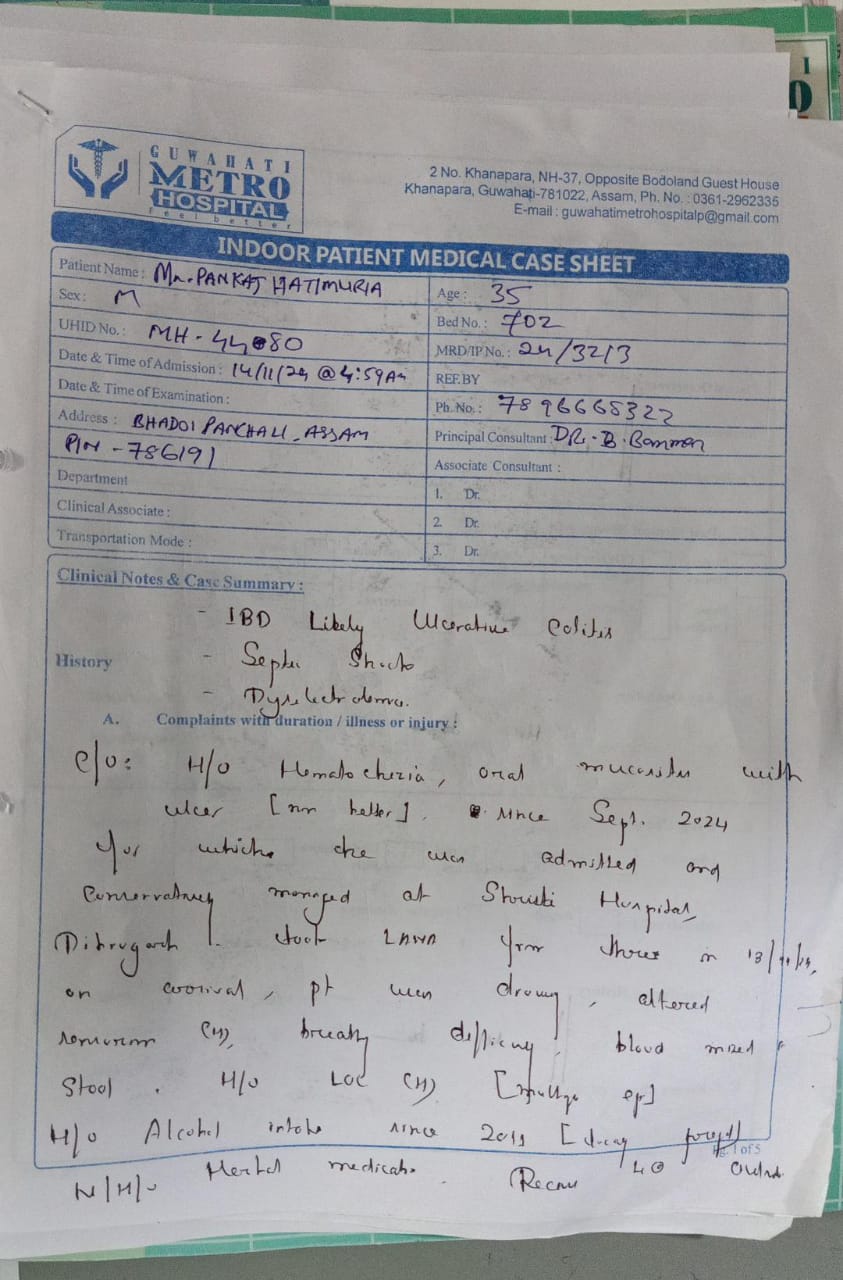 GUWAHATI
METRO
HOSPITAL
feel better
2 No. Khanapara, NH-37, Opposite Bodoland Guest House
Khanapara, Guwahati-781022, Assam, Ph. No. : 0361-2962335
E-mail : guwahatimetrohospitalp@gmail.com
INDOOR PATIENT MEDICAL CASE SHEET
Patient Name : Mr. PANKAJ HATIMURIA
Age : 35
Sex : M
Bed No. : 702
UHID No. : MH - 44080
MRD/IP No. : 24/3213
Date & Time of Admission : 14/11/24 @ 4:59 Am
REF.BY
Date & Time of Examination :
Ph. No. : 7896665322
Address : BHADOI PANCHALI, ASSAM
PIN - 786191
Principal Consultant : DR. B. Barman
Associate Consultant :
Department
1. Dr.
Clinical Associate :
2. Dr.
Transportation Mode :
3. Dr.
Clinical Notes & Case Summary :
- IBD Likely Ulcerative Colitis
History
- Septic Shock
-
A. Complaints with duration / illness or injury :
C/O: H/O Hematochezia, oral mucositis with
ulcer [ better]. since Sept. 2024
for which she was admitted and
Conservatively managed at Hospital,
Dibrugarh. took LAMA from there in
on arrival, pt was drowsy, altered
sensorium (+), difficulty, blood mixed
Stool. H/O LOC (+)
H/O Alcohol intake since
Pg. 1 of 5
N/H/o Herbal